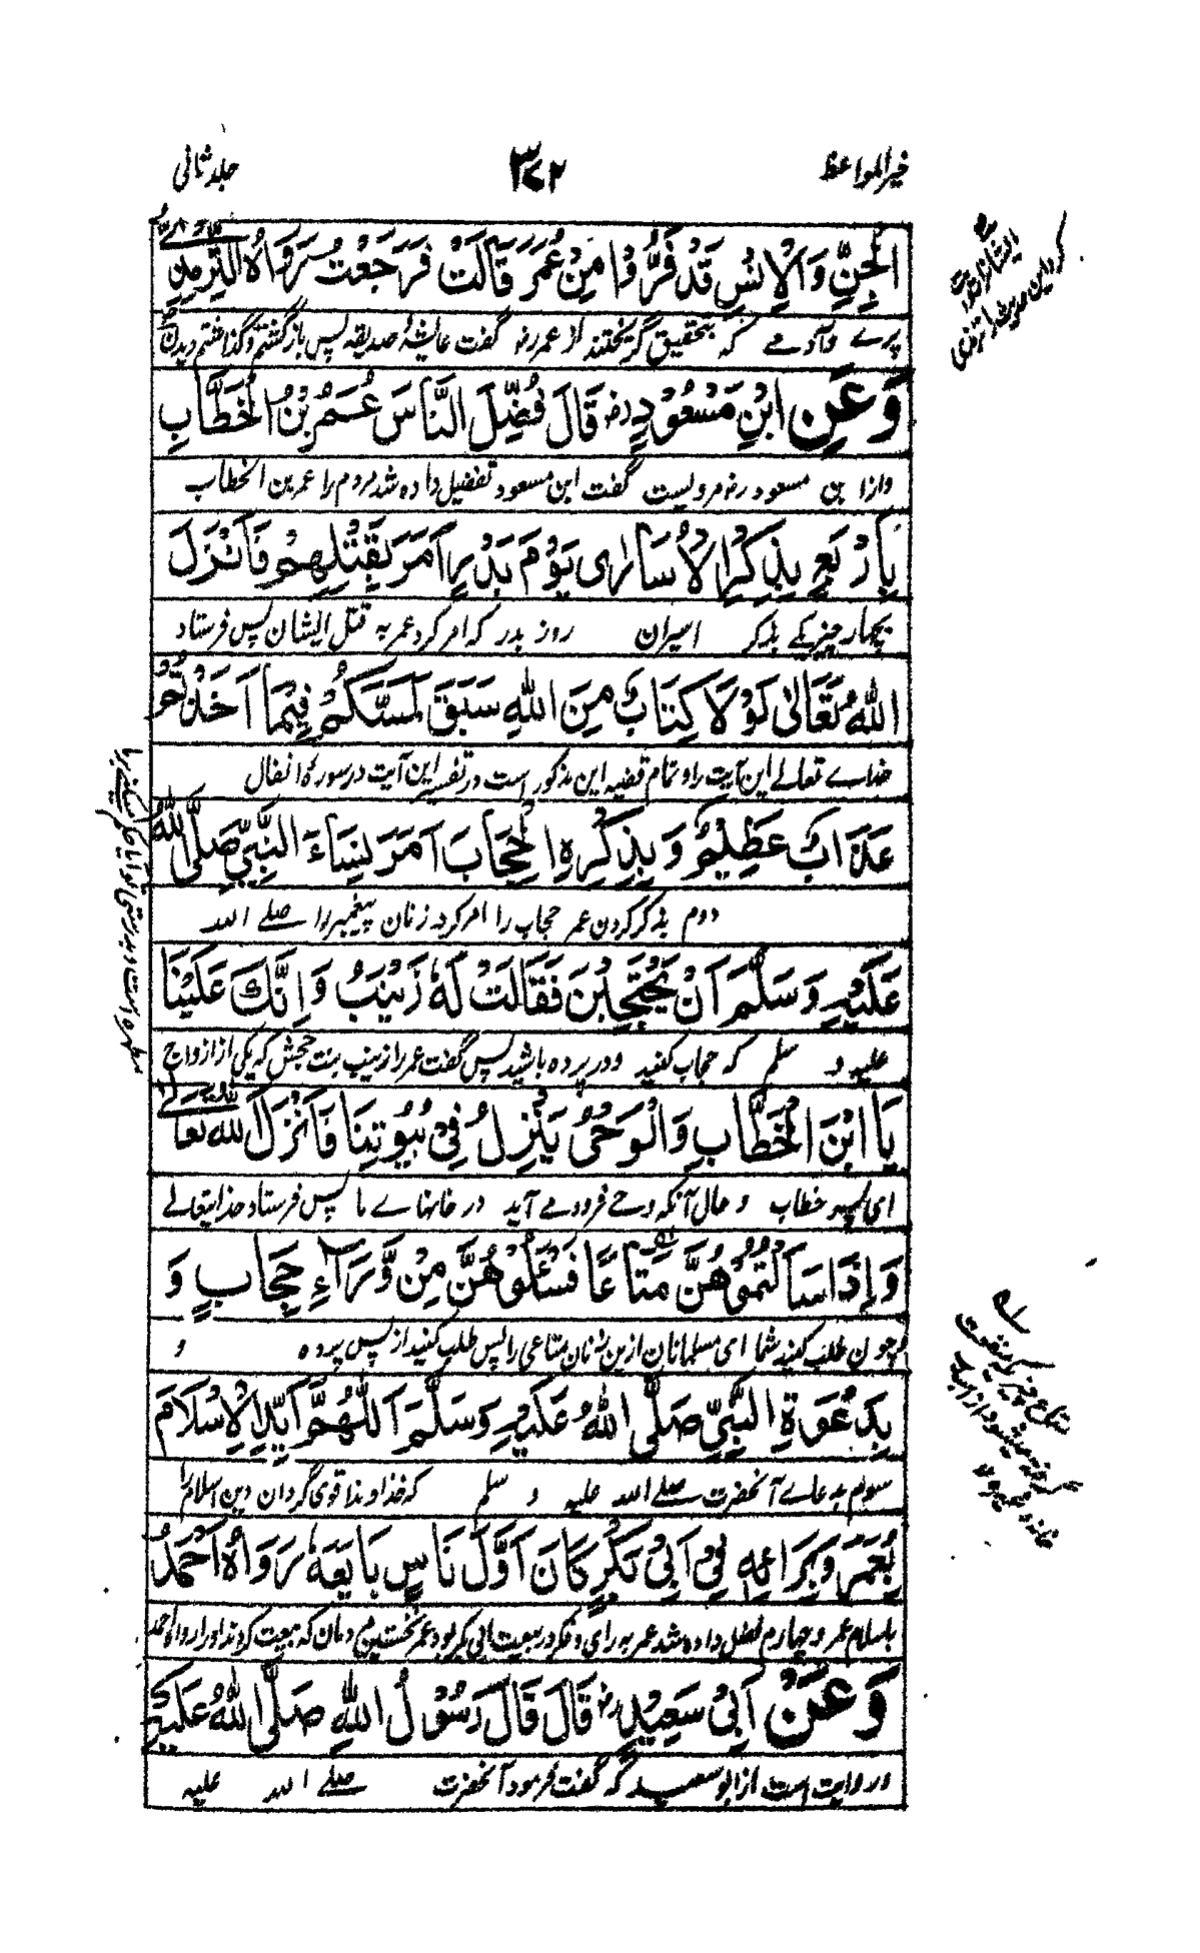 خیر المواعظ
۳۷۲
جلد ثانی
الْجِنِّ وَالْاِنْسِ قَدْ فَرُّوْا مِنْ عُمَرَ قَالَتْ فَرَجَعْتُ رَوَاهُ التِّرْمِذِيُّ
پرے وآدمے که بتحقیق گریختند از عمر رضه گفت عایشهٔ صدیقه پس باز گشتم و گذاشتم دیدن
وَعَنِ ابْنِ مَسْعُوْدٍ رضه قَالَ فُضِّلَ النَّاسَ عُمَرُ بْنُ الْخَطَّابِ
وازا بن مسعود رضه مرویست گفت ابن مسعود تفضیل داده شد مردم را عمر بن الخطاب
بِاَرْبَعٍ بِذِكْرِ الْاُسَارٰى يَوْمَ بَدْرٍ اَمَرَ بِقَتْلِهِمْ فَاَنْزَلَ
بچهار چیز یکے بذکر اسیران روز بدر که امر کرد عمر به قتل ایشان پس فرستاد
اللهُ تَعَالٰى لَوْلَا كِتَابٌ مِنَ اللهِ سَبَقَ لَمَسَّكُمْ فِيْمَا اَخَذْتُمْ
خداے تعالے این آیت را و تمام قضیه این مذکور است و تفسیر این آیت در سورهٔ انفال
عَذَابٌ عَظِيْمٌ وَبِذِكْرِهِ الْحِجَابَ اَمَرَ نِسَاءَ النَّبِيِّ صَلَّى اللهُ
دوم بذکر کردن عمر حجاب را امر کرد زنان پیغمبر را صلے الله
عَلَيْهِ وَسَلَّمَ اَنْ يَحْتَجِبْنَ فَقَالَتْ لَهُ زَيْنَبُ وَاِنَّكَ عَلَيْنَا
علیه و سلم که حجاب کنید و در پرده باشید پس گفت عمر را زینب بنت جحش که یکی از ازواج
يَا ابْنَ الْخَطَّابِ وَالْوَحْيُ يَنْزِلُ فِيْ بُيُوْتِنَا فَاَنْزَلَ اللهُ تَعَالٰى
ای پسر خطاب و حال آنکه وحے فرود مے آید در خانهاے ما پس فرستاد خدایتعالے
وَاِذَا سَاَلْتُمُوْهُنَّ مَتَاعًا فَسْئَلُوْهُنَّ مِنْ وَّرَآءِ حِجَابٍ وَ
و چون طلب کنید شما ای مسلمانان ازین زنان متاعی را پس طلب کنید از پس پرده و
بِدَعْوَةِ النَّبِيِّ صَلَّى اللهُ عَلَيْهِ وَسَلَّمَ اَللّٰهُمَّ اَيِّدِ الْاِسْلَامَ
سوم بدعاے آنحضرت صلے الله علیه و سلم که خداوندا قوی گردان دین اسلام را
بِعُمَرَ وَبِرَاْيِهِ فِيْ اَبِيْ بَكْرٍ كَانَ اَوَّلَ نَاسٍ بَايَعَهُ رَوَاهُ اَحْمَدُ
باسلام عمر و چهارم فضل داده شد عمر به رای و فکر در بیعت ابی بکر بود عمر نخستین مردمان که بیعت کردند اورا رواه احمد
وَعَنْ اَبِيْ سَعِيْدٍ رضه قَالَ قَالَ رَسُوْلُ اللهِ صَلَّى اللهُ عَلَيْهِ
و روایت است از ابو سعید که گفت فرمود آنحضرت صلے الله علیه